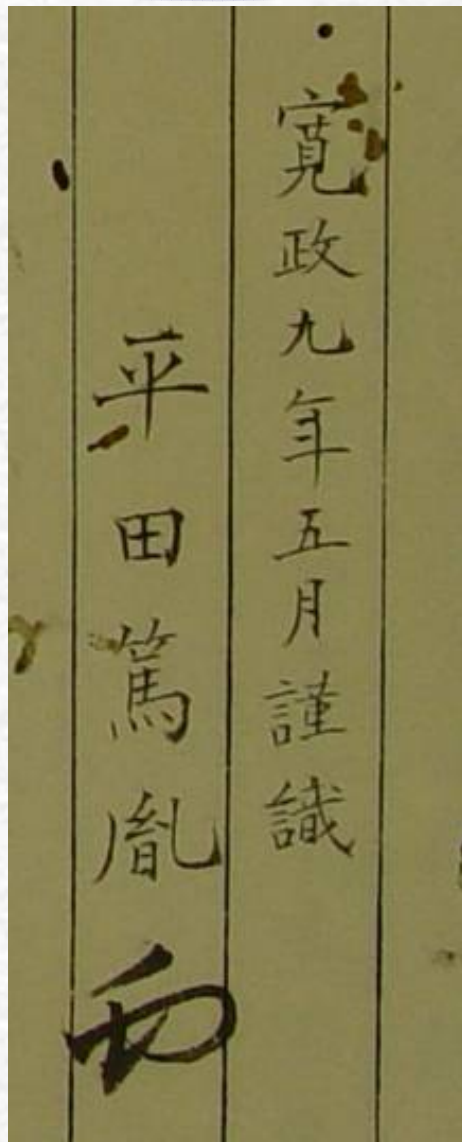 寛政九年五月謹識
平田篤胤